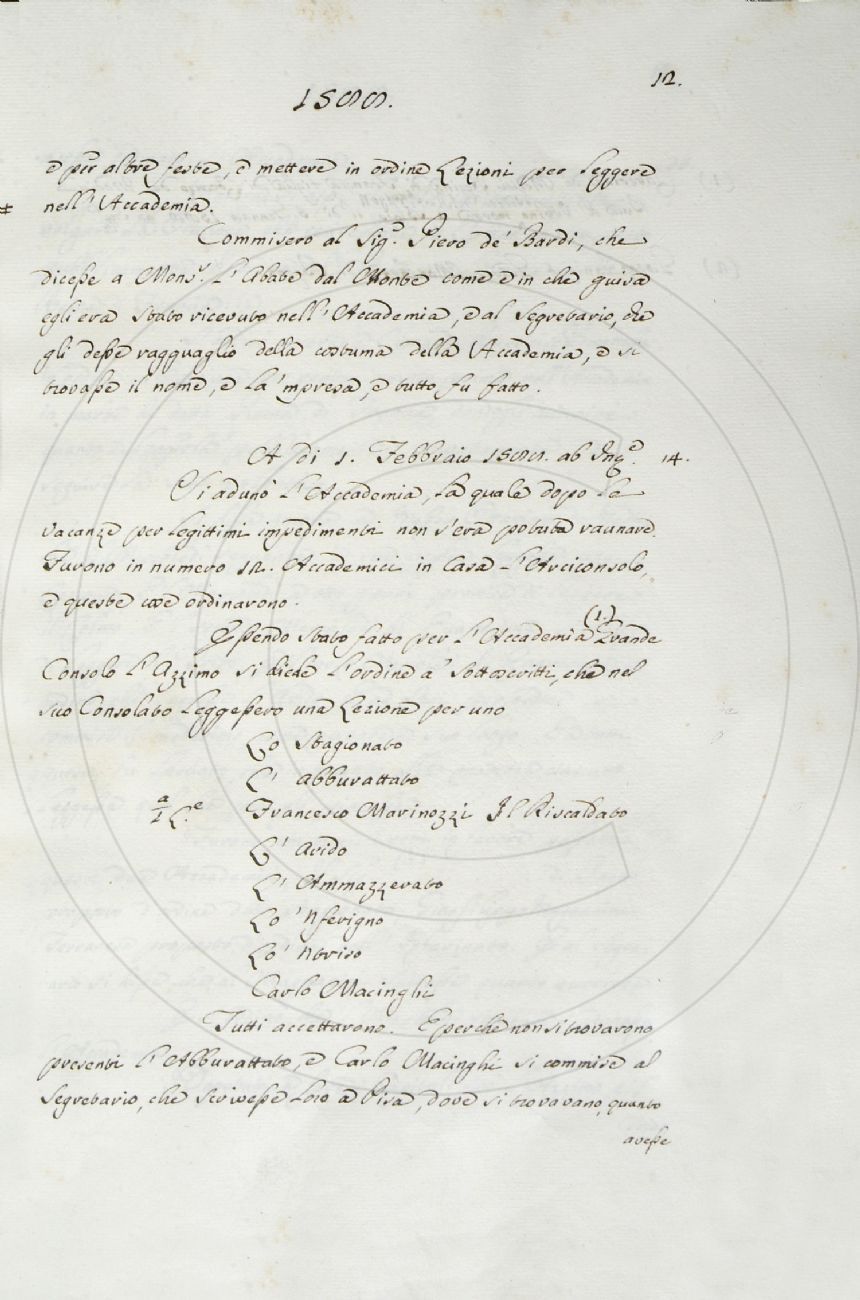 12.
1588.
e per altre feste, e mettere in ordine Lezioni per leggere
nell'Accademia.
Commisero al Sig.r Piero de' Bardi, che
dicesse a Mons.r L'Abate dal Monte come e in che guisa
egli era stato ricevuto nell'Accademia, e al Segretario, che
gli desse ragguaglio della costuma dell'Accademia, e si
trovasse il nome, e la 'mpresa, e tutto fu fatto.
A di 1. Febbraio 1588. ab Ing.e 14.
Si adunò L'Accademia, la quale dopo le
vacanze per legittimi impedimenti non s'era potuta raunare.
Furono in numero 12. Accademici in Casa L'Arciconsolo,
e queste cose ordinarono.
Essendo stato fatto per L'Accademia (1.) Grande
Consolo L'Azzimo si diede L'ordine a' Sottoscritti, che nel
suo Consolato leggessero una Lezione per uno
Lo Stagionato
L'abburattato
Francesco Marinozzi Il Riscaldato
L'Avido
L'Ammazzerato
Lo 'Nferigno
Lo 'Ntriso
Carlo Macinghi
Tutti accettarono. E perche non si trovarono
presenti L'Abburattato, e Carlo Macinghi si commise al
Segretario, che scrivesse loro a Pisa, dove si trovavano, quanto
avesse